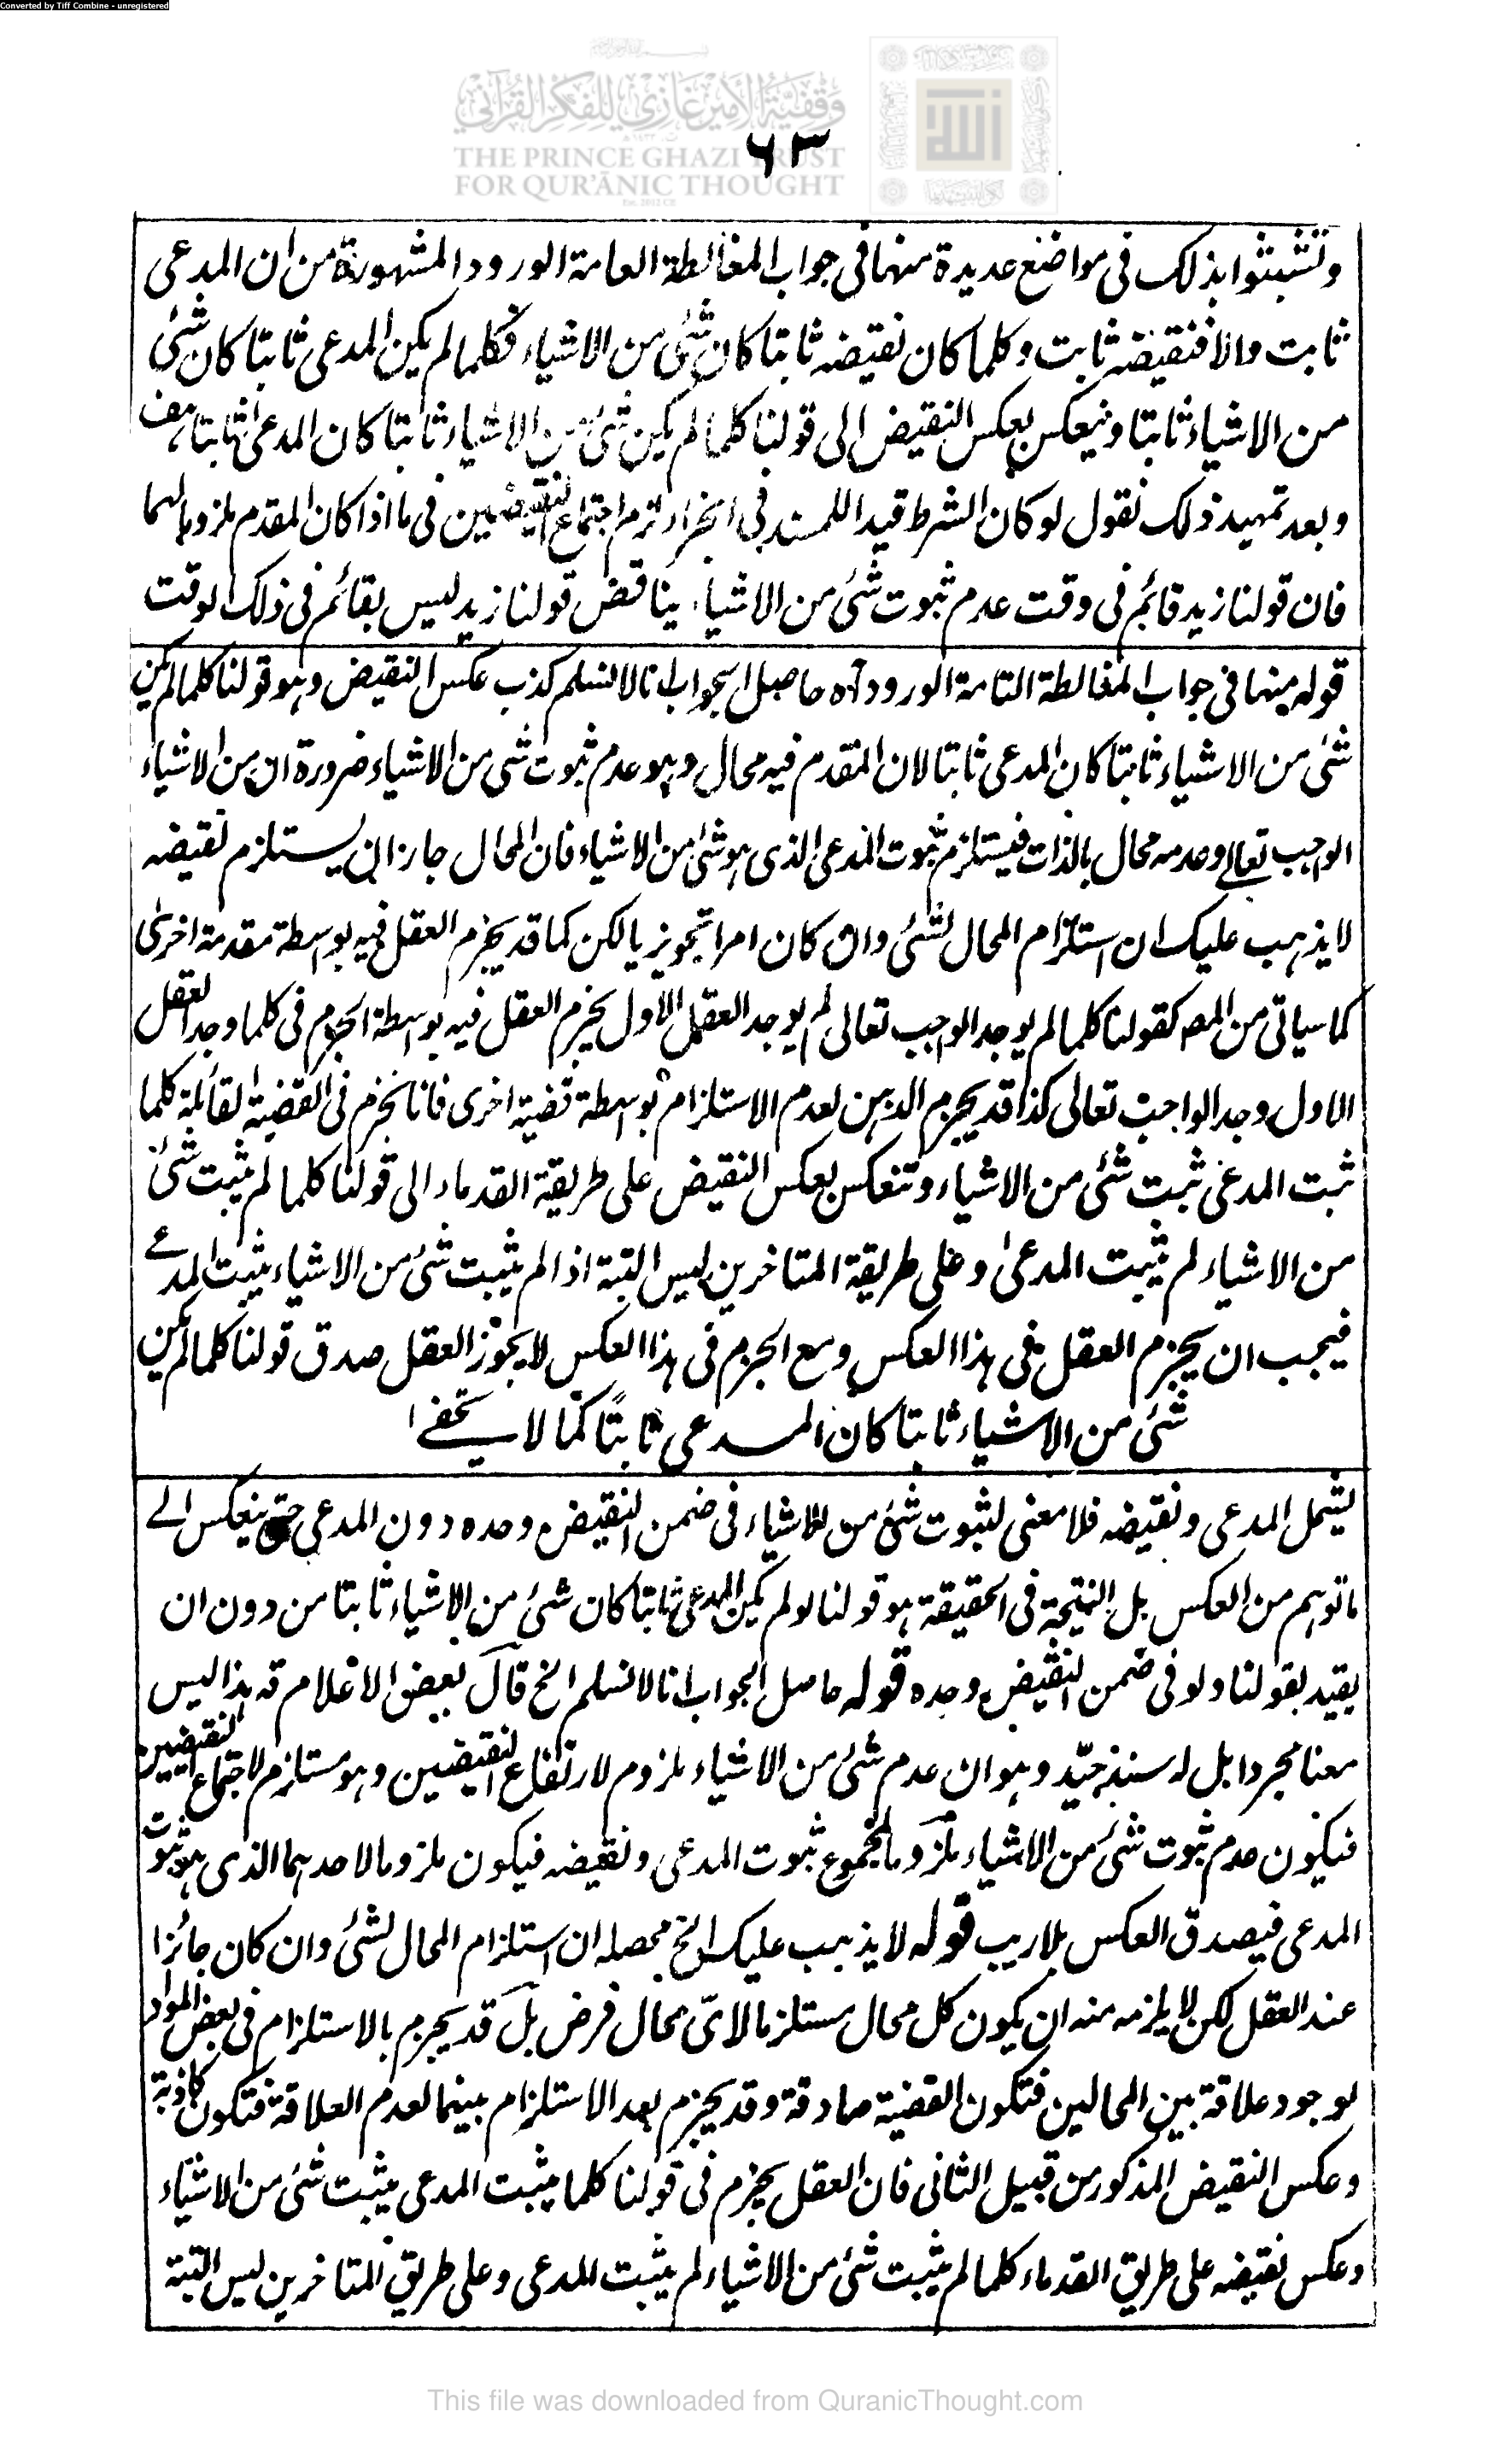 Converted by Tiff Combine - unregistered
وقفية الأمير غازي للفكر القرآني
THE PRINCE GHAZI TRUST
FOR QUR'ĀNIC THOUGHT
۶۳
وتشبثوا بذلك فى مواضع عديدة منها فى جواب المغالطة العامة الورود المشهورة من ان المدعى
ثابت والا فنقيضه ثابت وكلما كان نقيضه ثابتا كان شئ من الاشياء فكلما لم يكن المدعى ثابتا كان شئ
من الاشياء ثابتا وينعكس بعكس النقيض الى قولنا كلما لم يكن شئ من الاشياء ثابتا كان المدعى ثابتا هف
وبعد تمهيد ذلك نقول لو كان الشرط قيدا للمسند فى الجزاء لزم اجتماع النقيضين فى ما اذا كان المقدم ملزوما لهما
فان قولنا زيد قائم فى وقت عدم ثبوت شئ من الاشياء يناقض قولنا زيد ليس بقائم فى ذلك الوقت
قوله منها فى جواب المغالطة التامة الورود آه حاصل الجواب انا لا نسلم كذب عكس النقيض وهو قولنا كلما لم يكن
شئ من الاشياء ثابتا كان المدعى ثابتا لان المقدم فيه محال وهو عدم ثبوت شى من الاشياء ضرورة ان من الاشياء
الواجب تعالى وعدمه محال بالذات فيستلزم ثبوت المدعى الذى هو شئ من الاشياء فان المحال جاز ان يستلزم نقيضه
لا يذهب عليك ان استلزام المحال لشئ وان كان امرا تجويزيا لكن كما قد يجزم العقل فيه بواسطة مقدمة اخرى
كما سياتى من المصـ كقولنا كلما لم يوجد الواجب تعالى لم يوجد العقل الاول يجزم العقل فيه بواسطة الجزم فى كلما وجد العقل
الاول وجد الواجب تعالى كذا قد يجزم الذهن لعدم الاستلزام بواسطة قضية اخرى فانا نجزم فى القضية القائلة كلما
ثبت المدعى ثبت شئ من الاشياء وتنعكس بعكس النقيض على طريقة القدماء الى قولنا كلما لم يثبت شئ
من الاشياء لم يثبت المدعى وعلى طريقة المتاخرين ليس البتة اذا لم يثبت شئ من الاشياء يثبت المدعى
فيجب ان يجزم العقل فى هذا العكس ومع الجزم فى هذا العكس لا يجوّز العقل صدق قولنا كلما لم يكن
شئ من الاشياء ثابتا كان المدعى ثابتًا كما لا يخفى ١
يشمل المدعى ونقيضه فلا معنى لثبوت شئ من الاشياء فى ضمن النقيض وحده دون المدعى حتى ينعكس الى
ما توهم من العكس بل النتيجة فى الحقيقة هو قولنا لو لم يكن المدعى ثابتا كان شئ من الاشياء ثابتا من دون ان
يقيد بقولنا ولو فى ضمن النقيض وحده قوله حاصل الجواب انا لا نسلم الخ قال بعض الاعلام قه هذا ليس
منعا مجردا بل له سند جيّد وهو ان عدم شئ من الاشياء ملزوم لارتفاع النقيضين وهو مستلزم لاجتماع النقيضين
فيكون عدم ثبوت شئ من الاشياء ملزوما لمجموع ثبوت المدعى ونقيضه فيكون ملزوما لاحدهما الذى هو ثبوت
المدعى فيصدق العكس بلا ريب قوله لا يذهب عليك الخ محصله ان استلزام المحال لشئ وان كان جائزا
عند العقل لكن لا يلزمه منه ان يكون كل محال مستلزما لاىّ محال فرض بل قد يجزم بالاستلزام فى بعض المواد
لوجود علاقة بين المحالين فتكون القضية صادقة وقد يجزم بعد الاستلزام بينهما لعدم العلاقة فتكون كاذبة
وعكس النقيض المذكور من قبيل الثانى فان العقل يجزم فى قولنا كلما يثبت المدعى يثبت شئ من الاشياء
وعكس نقيضه على طريق القدماء كلما لم يثبت شئ من الاشياء لم يثبت المدعى وعلى طريق المتاخرين ليس البتة
This file was downloaded from QuranicThought.com